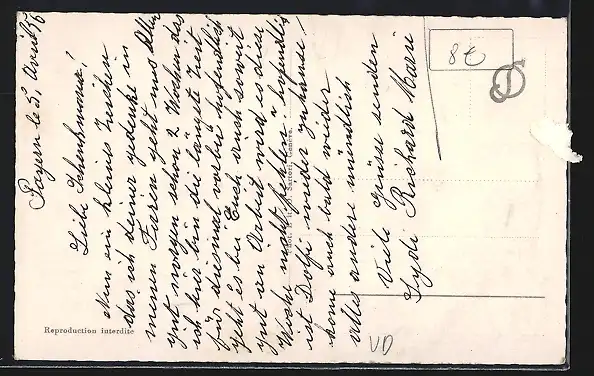 Payern le 5. Avril
Liebe Schenkmama!
Nun ein kleines Zeichen
das ich deiner gedenke in
meinen Ferien geht uns allen
gut morgen schon 2 Wochen das
ich hier bin die längste Zeit
für diesmal vorbei hofendlich
geht es bei Euch auch soweit
gut an Arbeit wird es dies
Woche nicht fehlen
ist Dolfi wider zuhause,
kome auch bald wider
alles andere mündlich
Viele Grüsse senden
Lydi Richard Marie
8€
VD
Reproduction interdite